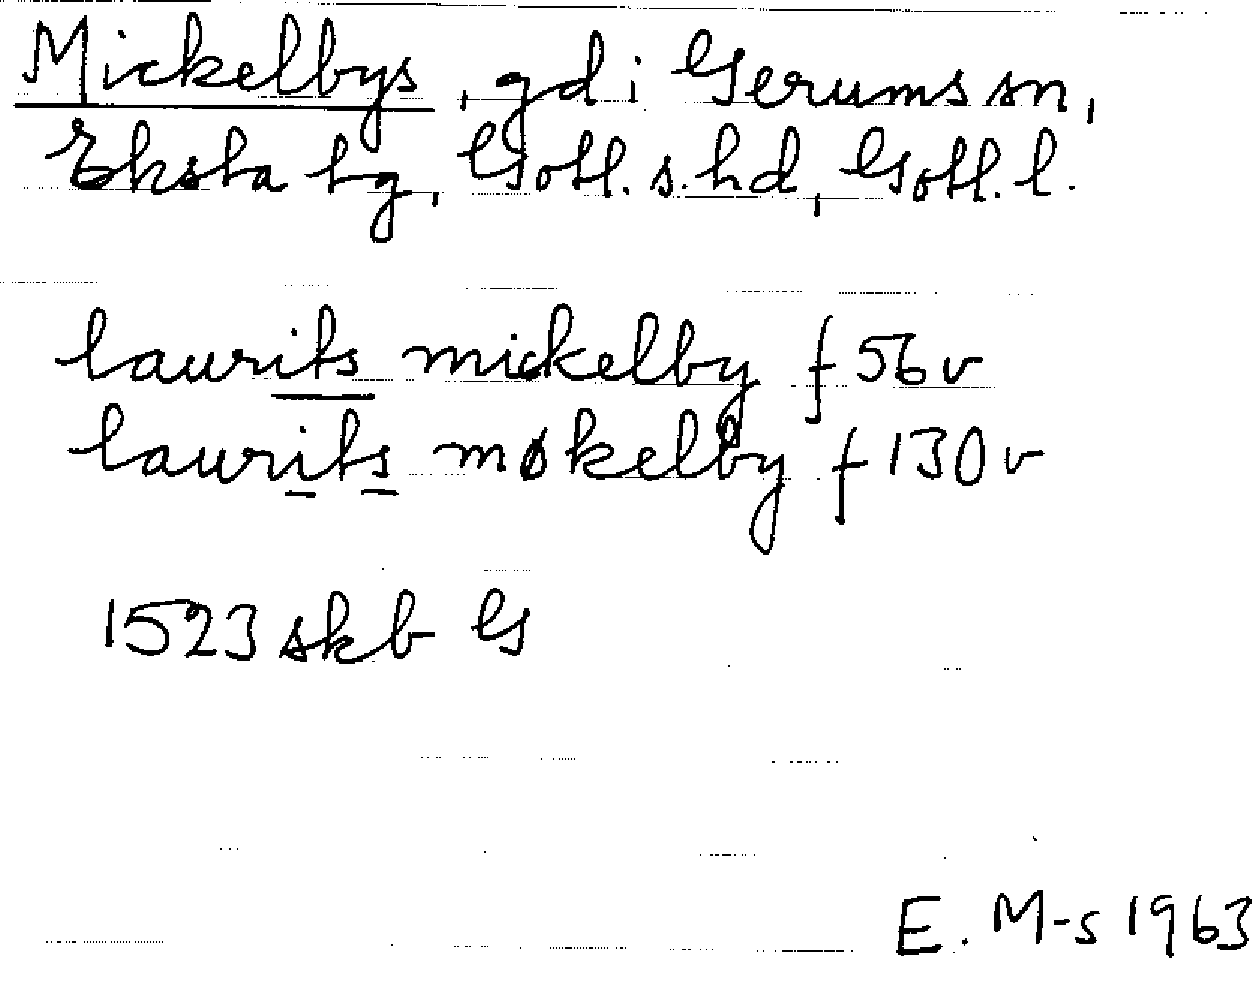 Mickelbys, gd i Gerums sn,
Eksta tg, Gotl. s. hd, Gotl. l.
laurits mickelby f 56 v
laurits møkelby f 130 v
1523 skb G
E. M-s 1963